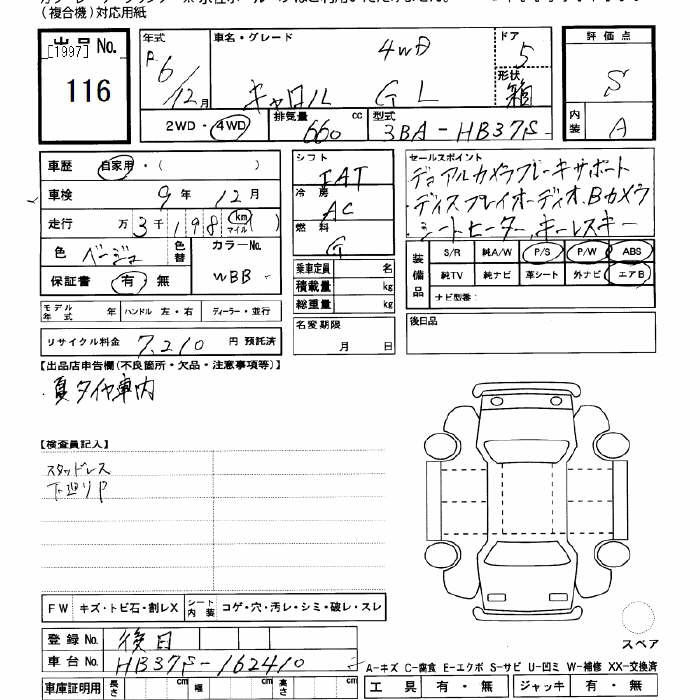 (複合機)対応用紙
出品No.
[1997]
116
年式 R6/12月
車名・グレード 4WD
キャロル GL
ドア 5
形状 箱
評価点 S
内装 A
2WD・4WD
排気量 660 cc
型式 3BA-HB37S
車歴 自家用・( )
車検 9年12月
走行 万3千198 km マイル ( )
色 ベージュ 色替
カラーNo. WBB
保証書 有・無
シフト FAT
冷房 AC
燃料 G
乗車定員 名
積載量 kg
総重量 kg
セールスポイント
デュアルカメラブレーキサポート
・ディスプレイオーディオ、Bカメラ
・シートヒーター、キーレスキー
装備品
S/R 純A/W P/S P/W ABS
純TV 純ナビ 革シート 外ナビ エアB
ナビ型番:
モデル年式 年 ハンドル 左・右 ディーラー・並行
名変期限 月 日
後日品
リサイクル料金 7,210 円 預託済
【出品店申告欄(不良箇所・欠品・注意事項等)】
・夏タイヤ車内
【検査員記入】
スタッドレス
下廻りP
FW キズ・トビ石・割レX シート内装 コゲ・穴・汚レ・シミ・破レ・スレ
スペア
登録No. 後日
車台No. HB37S-162410
A-キズ C-腐食 E-エクボ S-サビ U-凹ミ W-補修 XX-交換済
車庫証明用 長さ cm 幅 cm 高さ cm
工具 有・無 ジャッキ 有・無